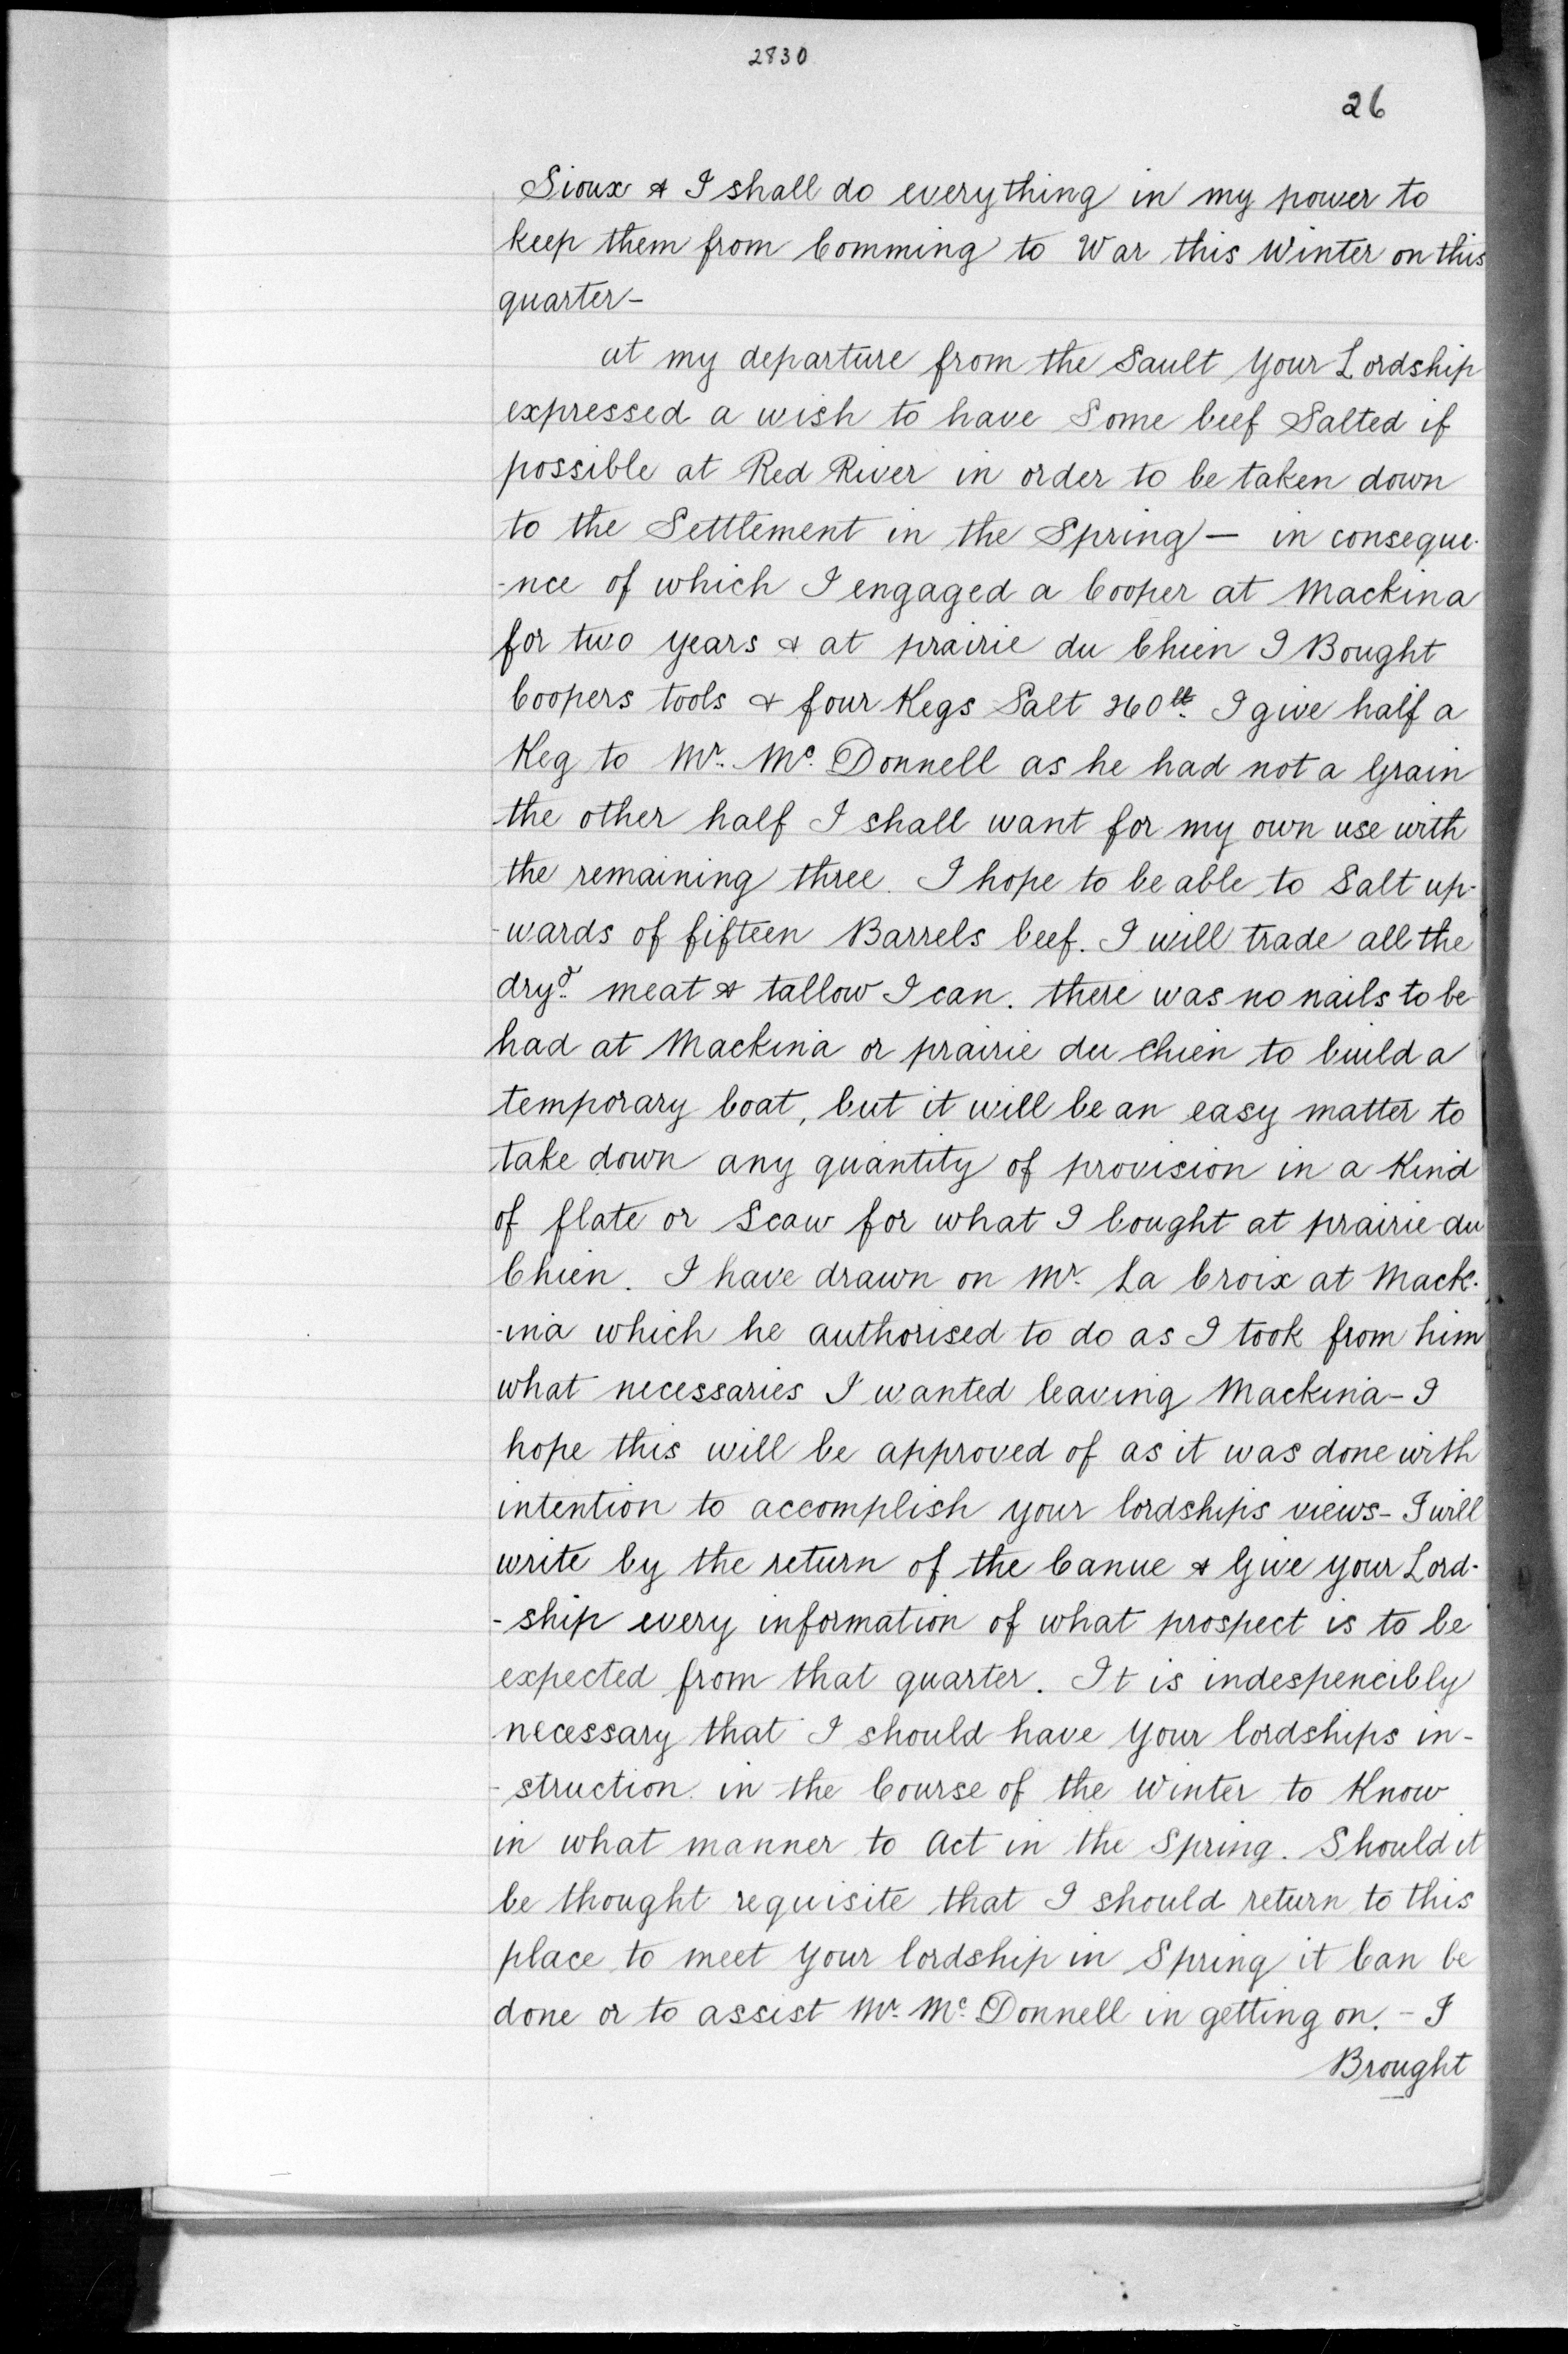 2830
26
Sioux & I shall do everything in my power to
keep them from Comming to War this Winter on this
quarter-
at my departure from the Sault your Lordship
expressed a wish to have Some beef Salted if
possible at Red River in order to be taken down
to the Settlement in the Spring — in conseque-
-nce of which I engaged a Cooper at Mackina
for two years & at prairie du Chien I Bought
Coopers tools & four Kegs Salt 260lt. I give half a
Keg to Mr. Mc. Donnell as he had not a Grain
the other half I shall want for my own use with
the remaining three. I hope to be able to Salt up-
-wards of fifteen Barrels beef. I will trade all the
dryd. meat & tallow I can. there was no nails to be
had at Mackina or prairie du Chien to build a
temporary boat, but it will be an easy matter to
take down any quantity of provision in a Kind
of flate or Scow for what I bought at prairie du
Chien. I have drawn on Mr. La Croix at Mack-
-ina which he authorised to do as I took from him
what necessaries I wanted leaving Mackina - I
hope this will be approved of as it was done with
intention to accomplish your lordships views - I will
write by the return of the Canue & Give your Lord-
-ship every information of what prospect is to be
expected from that quarter. It is indespencibly
necessary that I should have your lordships in-
-struction in the Course of the Winter to Know
in what manner to Act in the Spring. Should it
be thought requisite that I should return to this
place to meet your lordship in Spring it Can be
done or to assist Mr. Mc. Donnell in getting on. - I
Brought